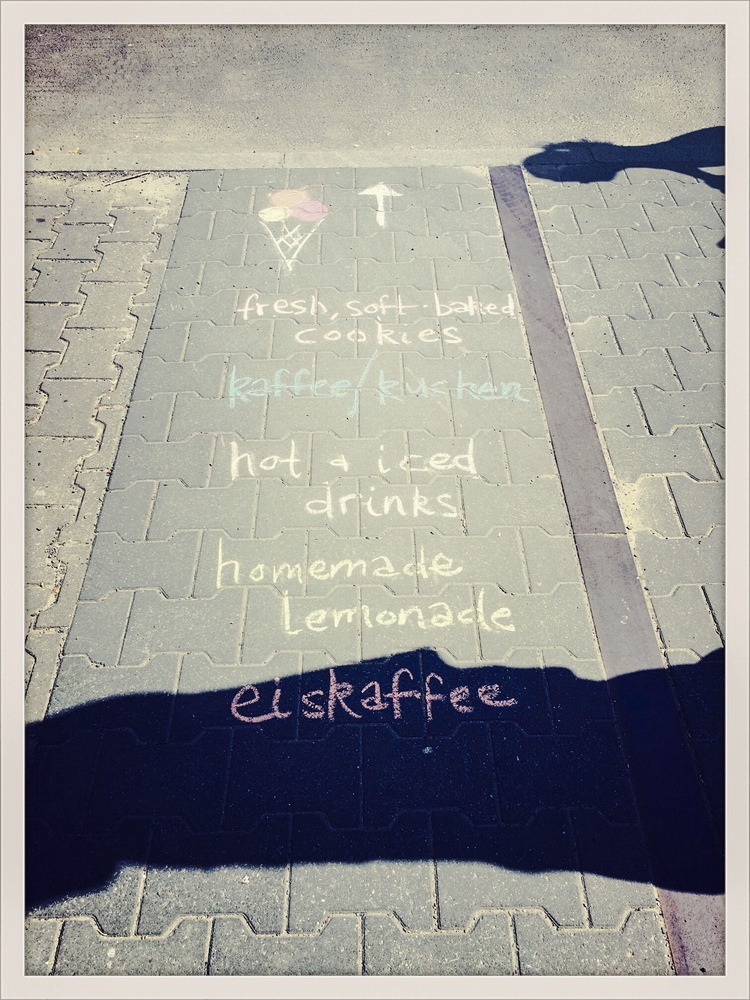 fresh, soft-baked
cookies
kaffee/kuchen
hot & iced
drinks
homemade
Lemonade
eiskaffee